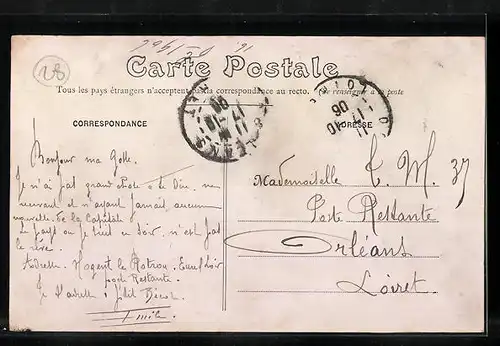 28
Carte Postale
Tous les pays étrangers n'acceptent pas la correspondance au recto. (Se renseigner à la poste
CORRESPONDANCE
ADRESSE
Bonjour ma
Je n'ai pas grand chose à te dire, ne
recevant et n'ayant jamais aucune
nouvelle de la Capitale
Le pays où je suis ce soir, n'est pas
le rêve.
Adresse. Nogent le Rotrou. Eure & Loir
poste Restante.
Je t'adresse
Emile
Mademoiselle T. M. 37
Poste Restante
Orléans
Loiret.